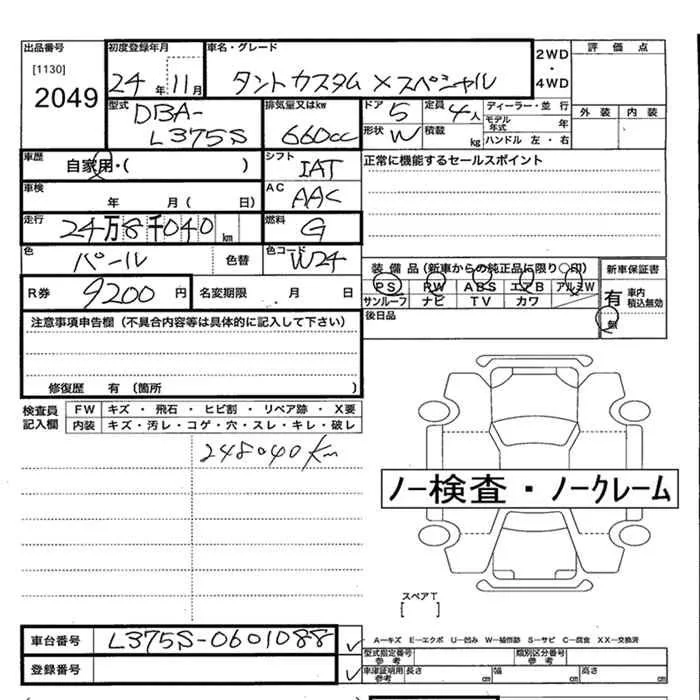 出品番号
[1130]
2049
初度登録年月
24年11月
車名・グレード
タントカスタム Xスペシャル
2WD
・
4WD
評価点
外装 内装
型式
DBA-
L375S
排気量又はkw
660cc
ドア 5
定員 4人
ディーラー・並行
モデル年式 年
形状 W
積載 kg
ハンドル 左・右
車歴
自家用・( )
シフト
IAT
正常に機能するセールスポイント
車検
年 月( 日)
AC
AAC
走行
24万8千040km
燃料
G
色
パール
色替
色コード
W24
装備品(新車からの純正品に限り○印)
PS PW ABS エアB アルミW
サンルーフ ナビ TV カワ
新車保証書
有
車内積込無効
無
R券 9200円
名変期限 月 日
後日品
注意事項申告欄(不具合内容等は具体的に記入して下さい)
修復歴 有(箇所 )
検査員記入欄
FW キズ・飛石・ヒビ割・リペア跡・X要
内装 キズ・汚レ・コゲ・穴・スレ・キレ・破レ
248040km
ノー検査・ノークレーム
スペアT
[ ]
車台番号 L375S-0601088
登録番号
A-キズ E-エクボ U-凹み W-補修跡 S-サビ C-腐食 XX-交換済
型式指定番号 参考
類別区分番号 参考
車庫証明用 参考
長さ cm 幅 cm 高さ cm